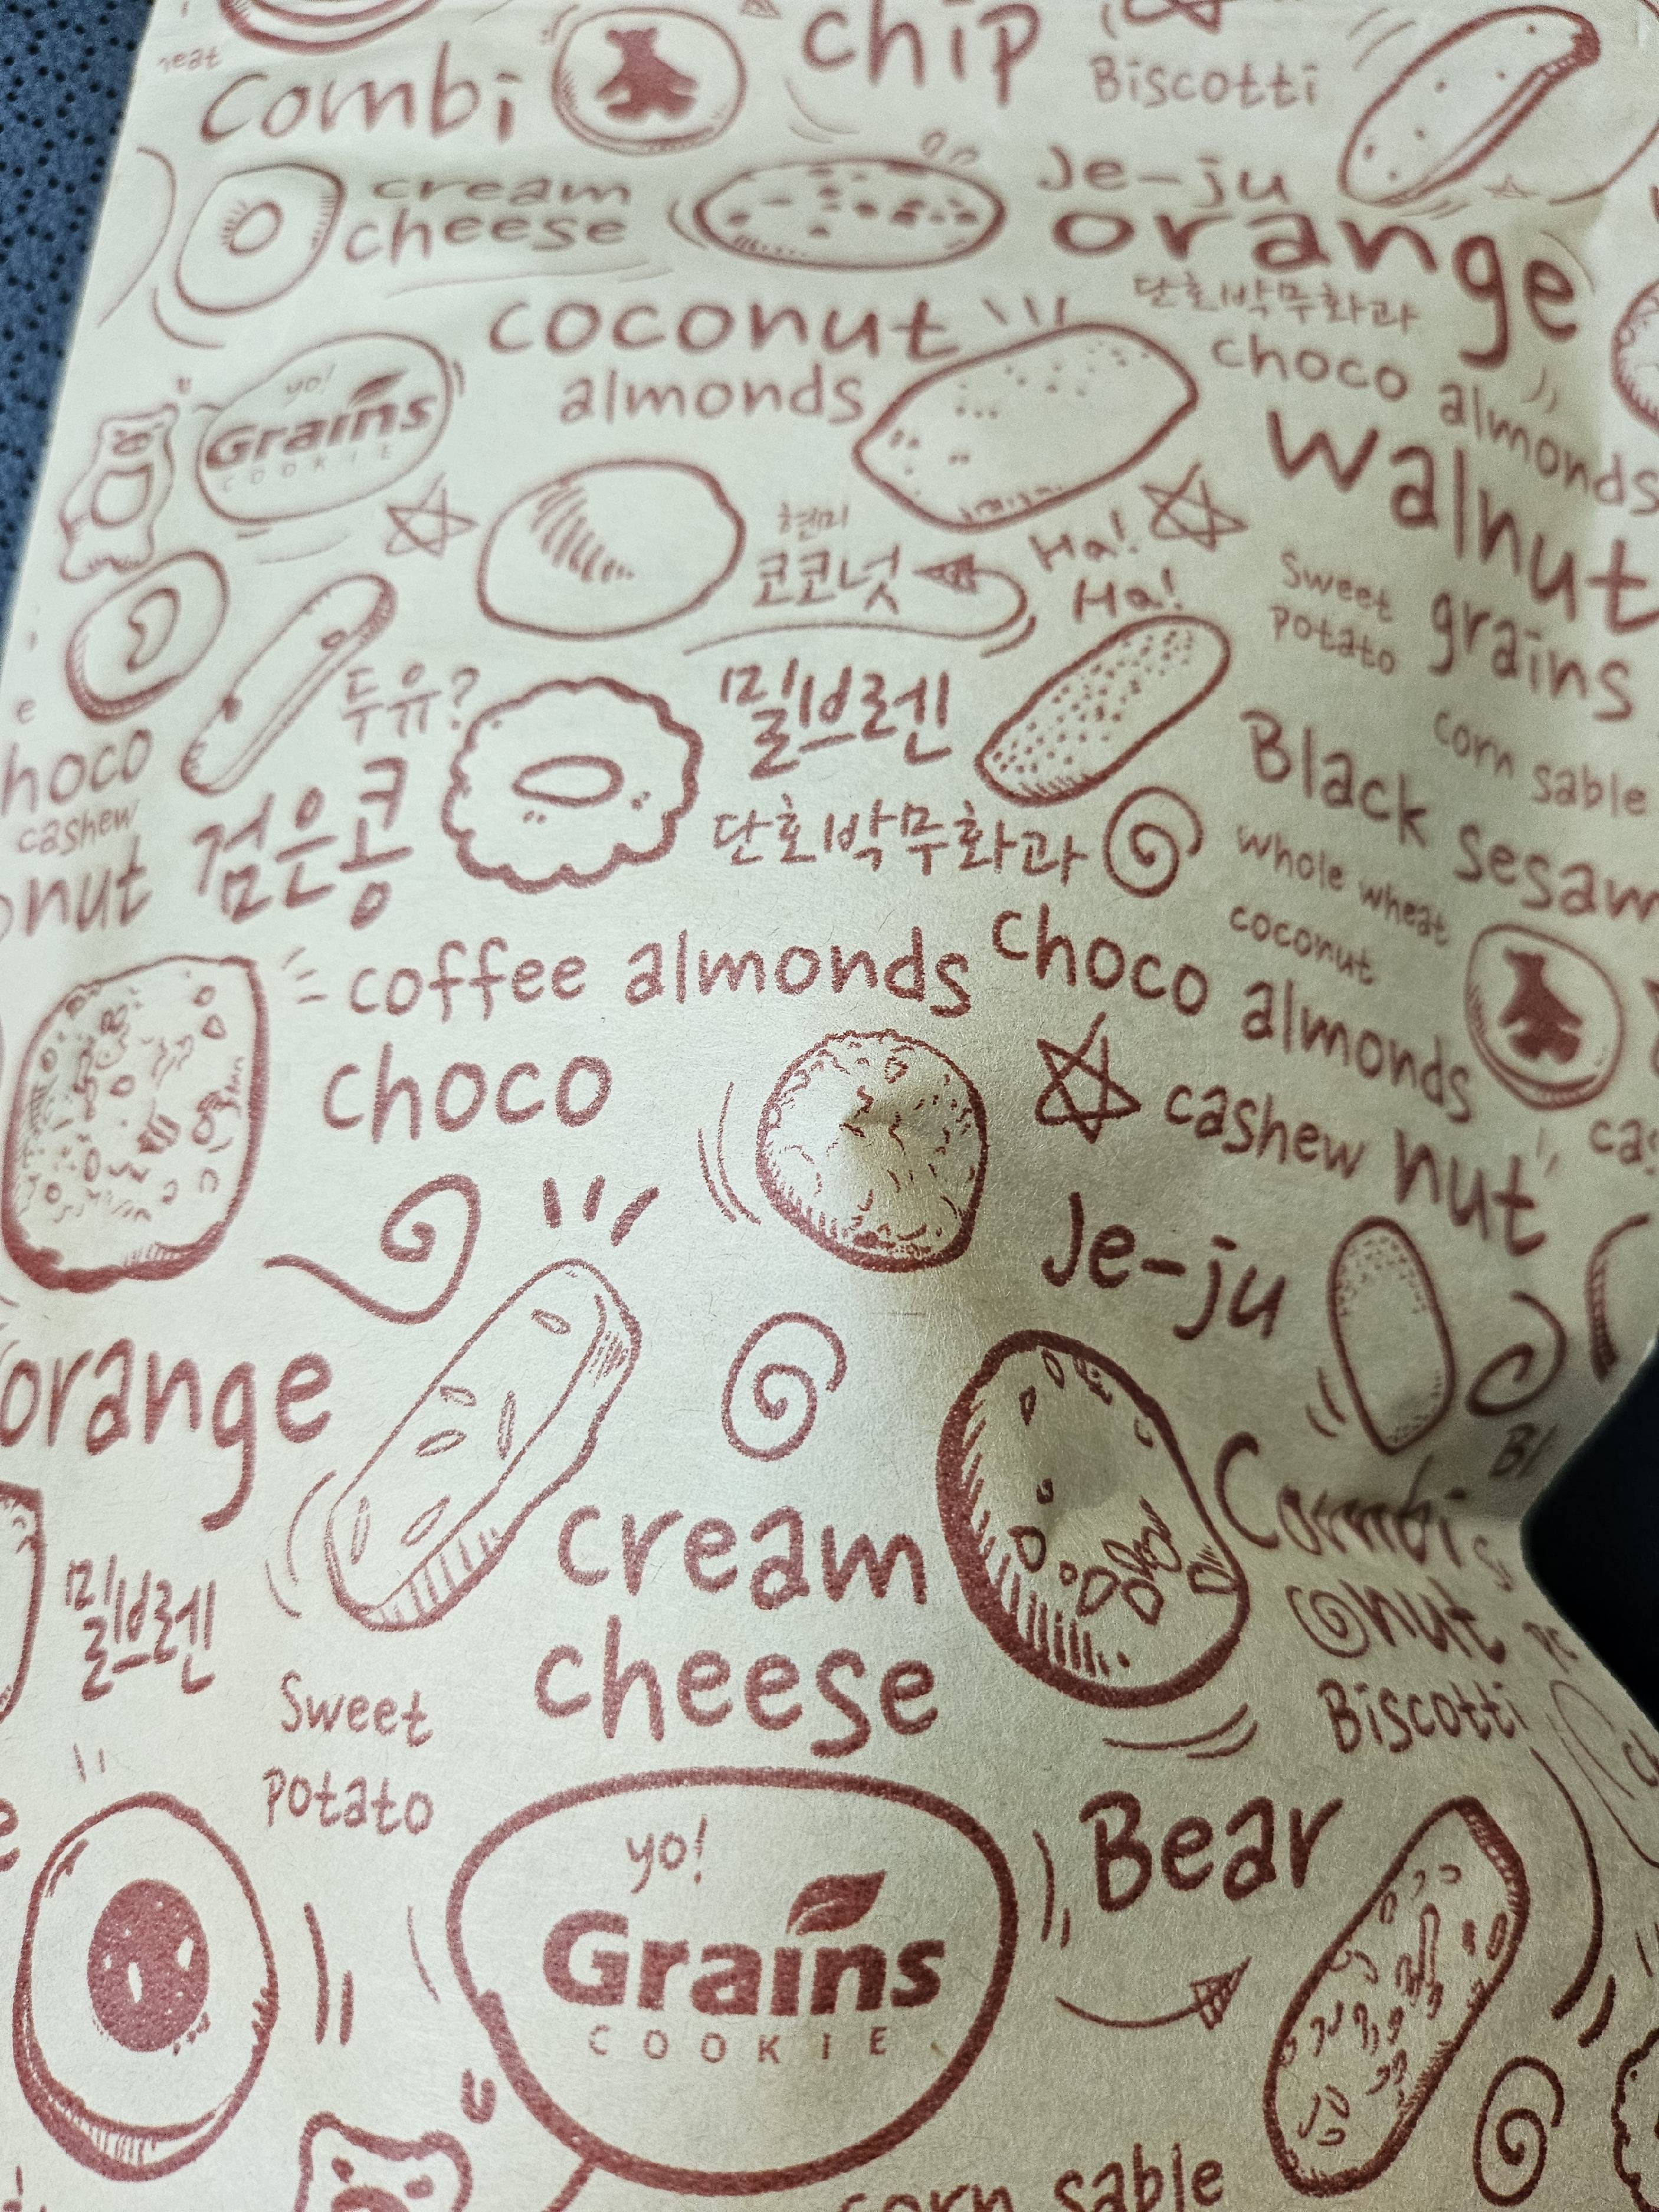 Combi
chip
Biscotti
cream
cheese
Je-ju
orange
단호박무화과
coconut
almonds
choco almonds
yo!
Grains
COOKIE
walnut
현미
코코넛
Ha!
Ha!
Sweet
potato
grains
두유?
밀브렌
corn sable
hoco
cashew
nut
검은콩
단호박무화과
Black sesam
whole wheat
coconut
coffee almonds
choco almonds
choco
cashew nut
cas
Je-ju
orange
Bl
Combi
cream
cheese
nut
밀브렌
Biscotti
Sweet
potato
Bear
yo!
Grains
COOKIE
corn sable